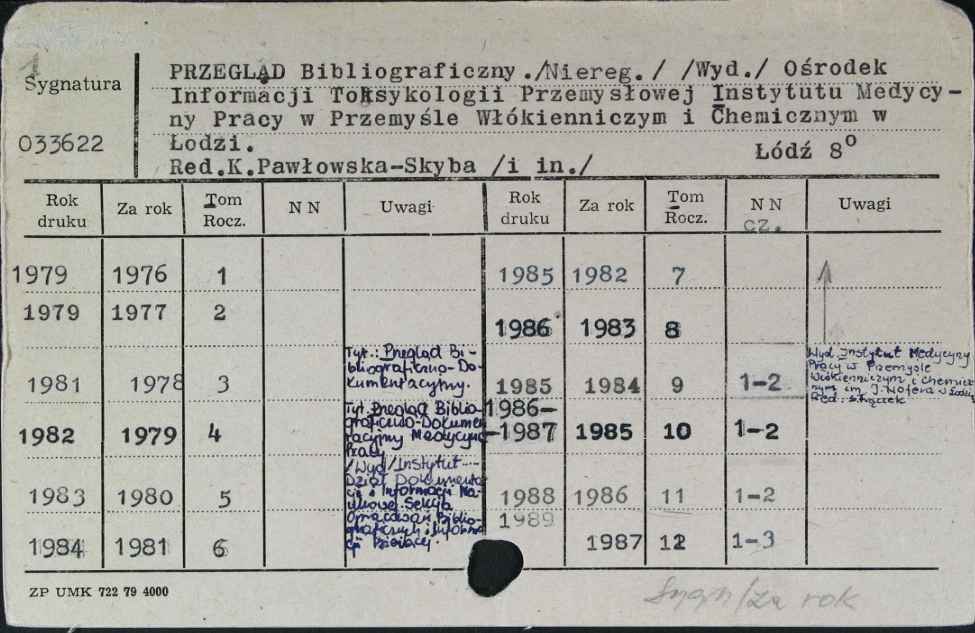 Sygnatura
033622
PRZEGLĄD Bibliograficzny./Niereg./ /Wyd./ Ośrodek
Informacji Toksykologii Przemysłowej Instytutu Medycy-
ny Pracy w Przemyśle Włókienniczym i Chemicznym w
Łodzi.
Łódź 8°
Red.K.Pawłowska-Skyba /i in./
Rok druku Za rok Tom Rocz. N N Uwagi Rok druku Za rok Tom Rocz. N N cz. Uwagi
1979 1976 1 1985 1982 7
1979 1977 2 1986 1983 8
1981 1978 3 1985 1984 9 1-2
1982 1979 4 1986-
-1987 1985 10 1-2
1983 1980 5 1988 1986 11 1-2
1989
1984 1981 6 1987 12 1-3
Tyt.: Przegląd Bi-
bliograficzno-Do-
kumentacyjny.
Tyt. Przegląd Biblio-
graficzno-Dokumen
tacyjny Medycyna
Pracy
/Wyd/Instytut
Dział Dokumenta
cji i Informacji Na-
ukowej Sekcja
Opracowań Biblio-
graficznych i Informa
cji
Wyd. Instytut Medycyny
Pracy w Przemyśle
Włókienniczym i Chemicz
nym im. J. Nofera w Łodzi
Red.:
ZP UMK 722 79 4000
/za rok